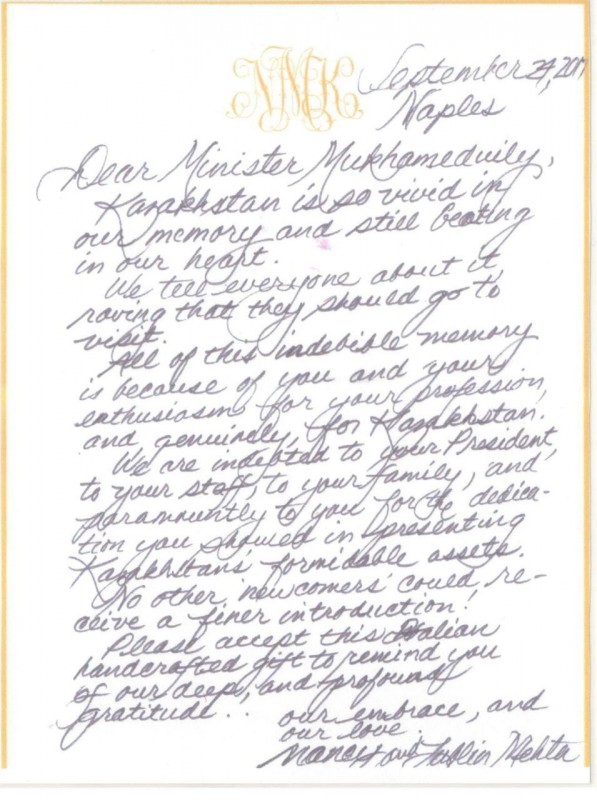 NMK
September 27, 2017
Naples
Dear Minister Mukhameduily,
Kazakhstan is so vivid in
our memory and still beating
in our heart.
We tell everyone about it
raving that they should go to
visit.
All of this indebible memory
is because of you and your
enthusiasm for your profession,
and genuinely, for Kazakhstan.
We are indepted to your President,
to your staff, to your family, and,
paramnuntly to you for the dedica-
tion you showed in presenting
Kazakhstans' formidable assets.
No other 'newcomers' could, re-
ceive a finer introduction!
Please accept this Italian
handcrafted gift to remind you
of our deep, and profound
gratitude..
our embrace, and
our love.
Nancy and Zubin Mehta